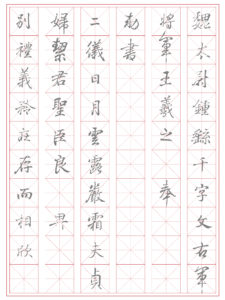 魏太尉鍾繇千字文右軍
將軍王羲之 奉
勑書
二儀日月雲露嚴霜夫貞
婦絜君聖臣良 卑
別禮義矜莊存而相欣